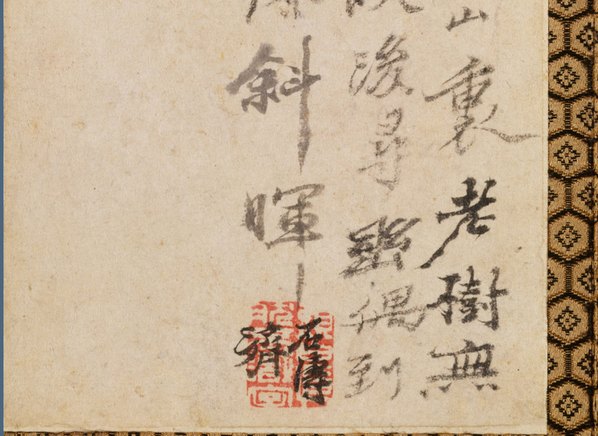 山裏老樹無
後尋幽偶到
斜暉
石濤
濟